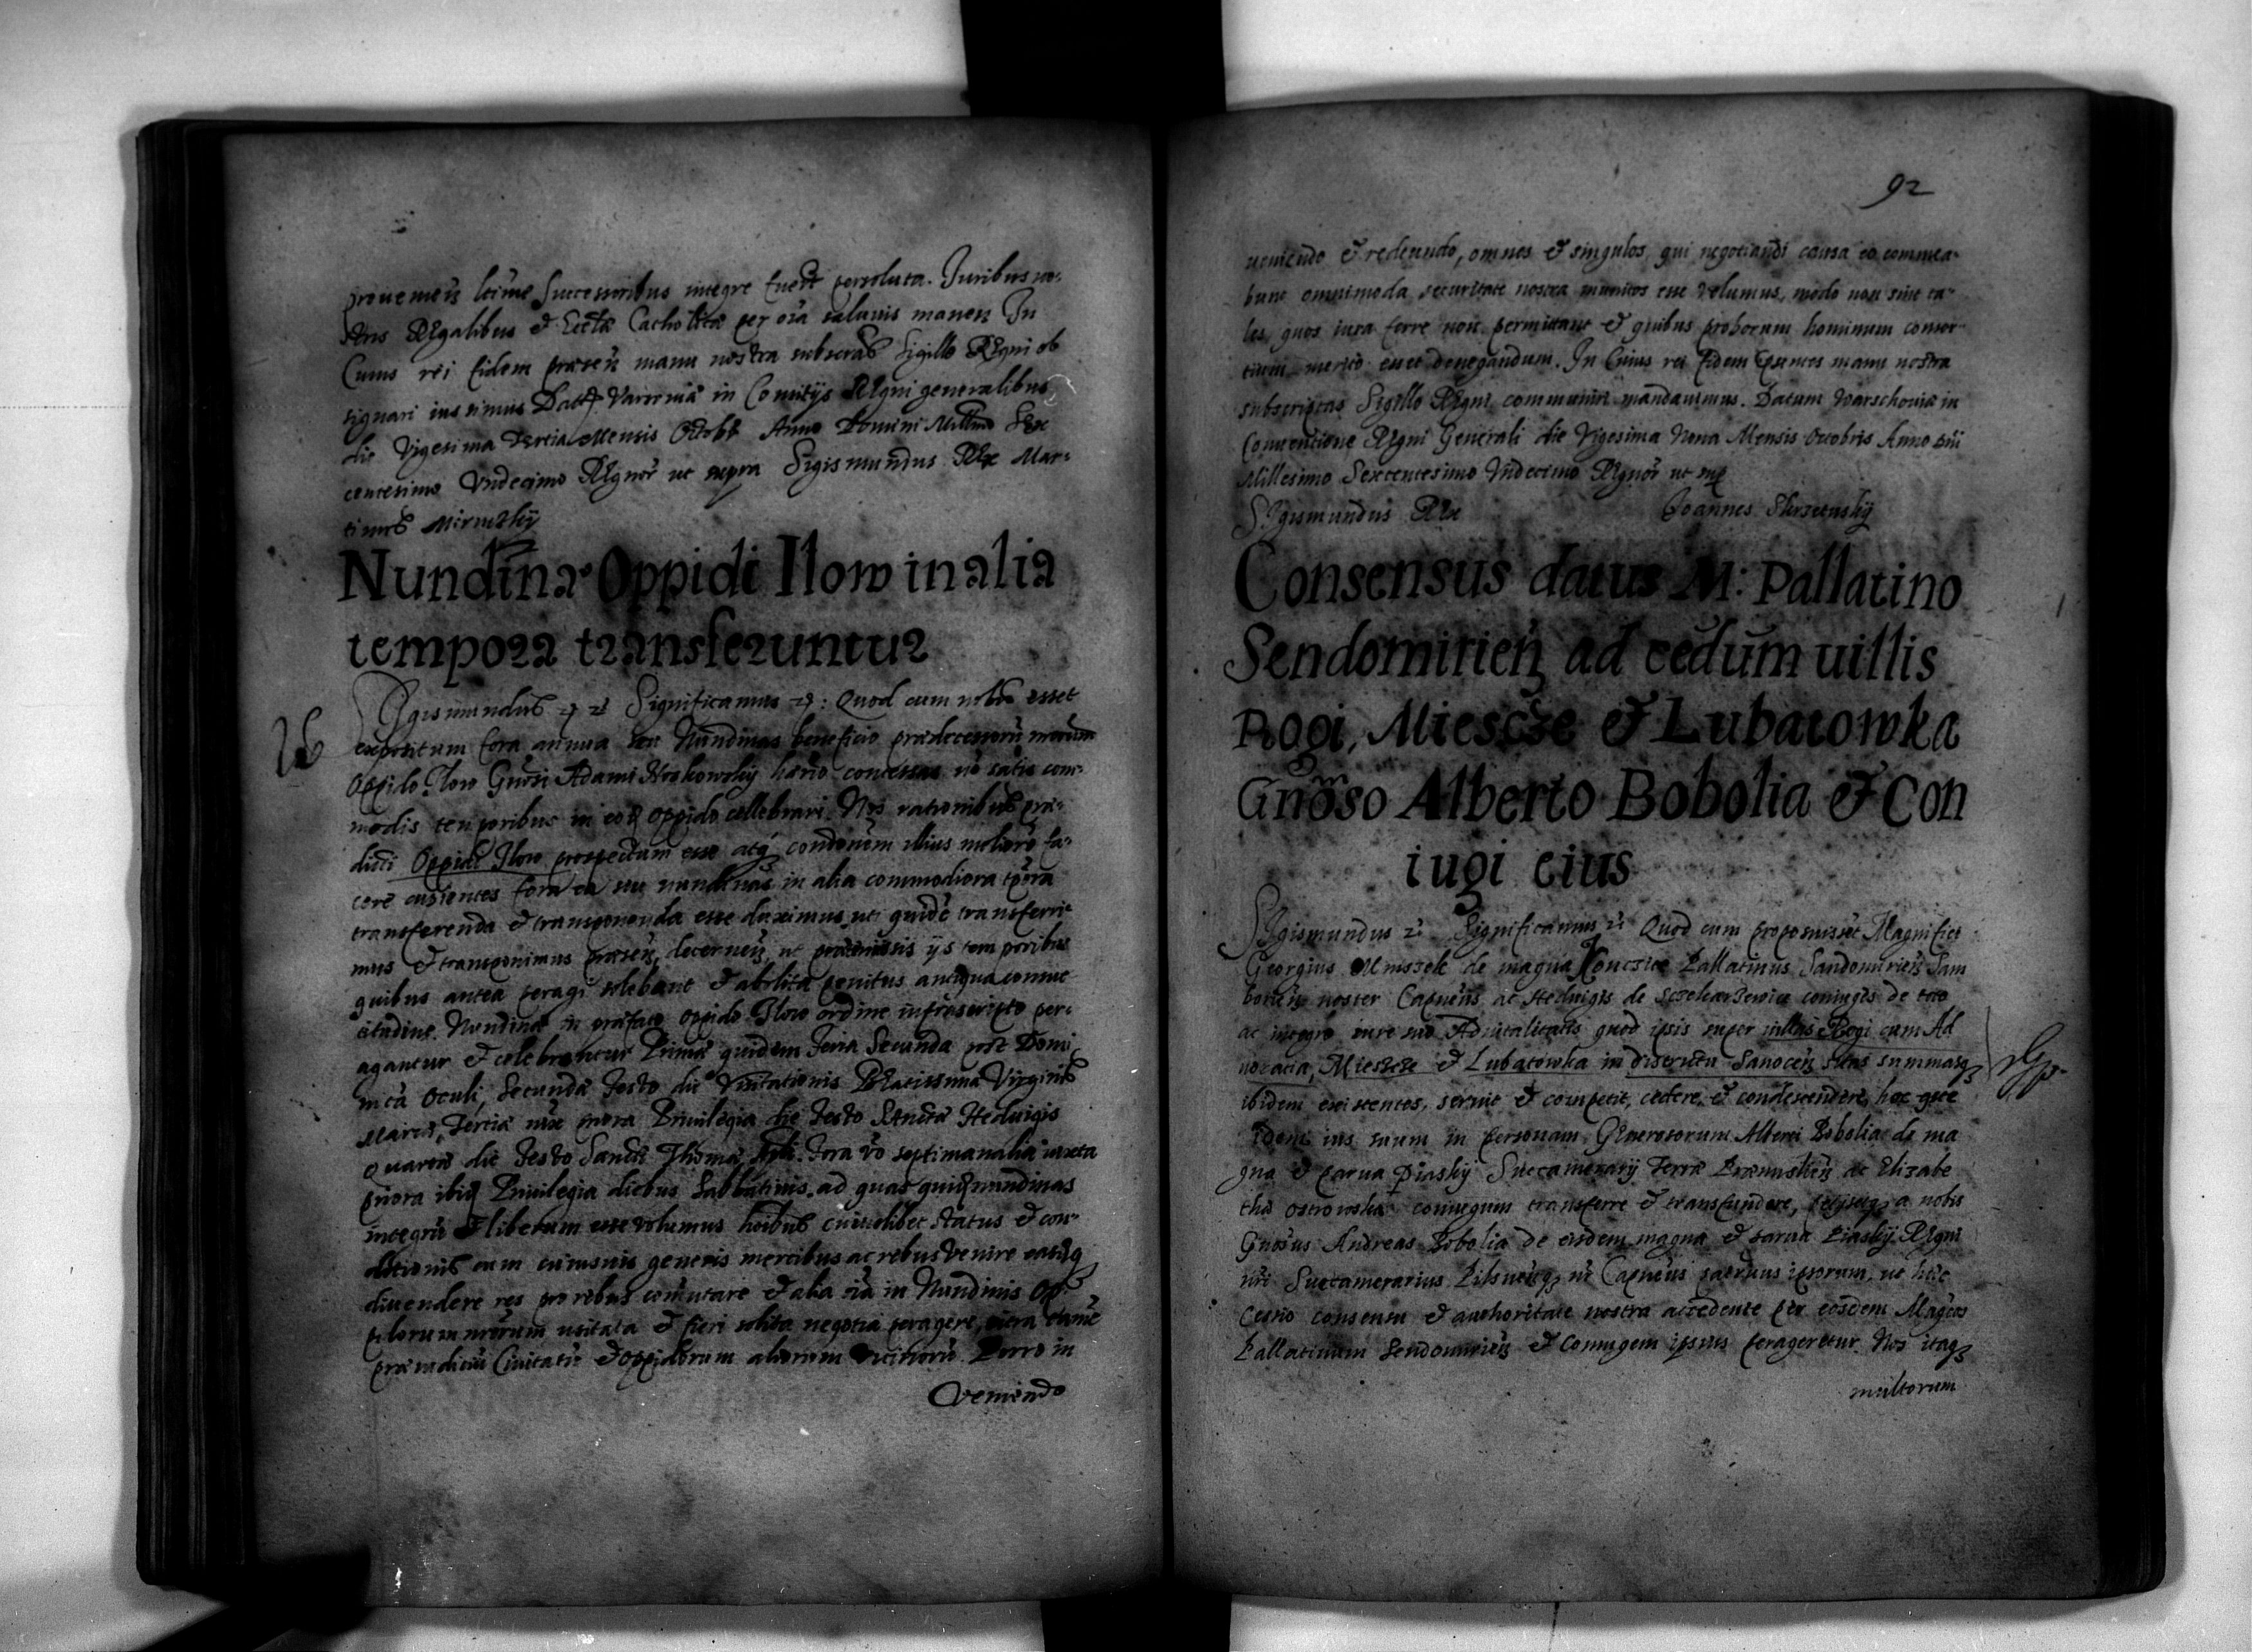 prouenieñ letime Successoribus integre fuerit persoluta. Juribus no-
stris Regalibus & Eccła Catholica per oia saluis maneñ In
Cuius rei fidem præseñ manu nostra subscrás Sigillo Regni ob
signari iussimus Datt Varsouiæ in Comitijs Regni generalibus
die Vigesima Tertia Mensis Octobr Anno Domini Millmo Sex
centesimo Vndecimo Regnor ut supra Sigismundus Rex Mar-
tinus
Nundinæ Oppidi Ilow in alia
tempora transferuntur
SIgismundus Significamus: Quod cum nobis esset
expositum fora annua seu Nundinas beneficio prædecessorũ nrorum
Oppido Ilow Gñosi Adami hærio concessas nõ satis com-
modis temporibus in eoq oppido cellebrari. Nos rationibus præ-
dicti Oppidi Ilow prospectum esse atq condonem illius meliorẽ fa-
cere cupientes fora ea seu nundinas in alia commodiora tpora
transferenda & transponenda esse duximus uti quidẽ transferri-
mus & transponimus præseñ, decerneñ, ut præmissis ijs temporibus
quibus antea peragi solebant & abolita penitus antiqua consue
titudine. Nundinæ in præfato oppido Ilow ordine infrascripto per-
agantur & celebrentur Prima quidem Feria Secunda post Domi
nicã Oculi, Secunda Festo die Visitationis Beatissimæ Virginis
Mariæ, Tertia priora Priuilegia die Festo Sanctæ Heduigis
Quarta die Festo Sancti Thomæ Apli. Fora vo septimanalia iuxta
priora ibiq Priuilegia diebus Sabbatinis. ad quas quidq nundinas
integrũ & liberum esse volumus hoibus cuiuslibet status & con-
ditionis cum cuiusuis generis mercibus ac rebus venire easq
diuendere res pro rebus comutare & alia oia in Nundinis Op-
pidorum nrorum usitata & fieri solita negotia peragere, citra tamẽ
præiudiciũ Ciuitatis & oppidorum aliorum vicinorũ. Porro in
Veniendo
92
ueniendo & redeundo, omnes & singulos, qui negotiandi causa eo commea-
bunt omnimoda securitate nostra munitos esse volumus, modo non sint ta-
les quos iura ferre non permittant & quibus proborum hominum consor-
tium merito esset denegandum. In Cuius rei fidem psentes manu nostra
subscriptas Sigillo Regni communiri mandauimus. Datum Warschouiæ in
Conuentione Regni Generali die Vigesima Nona Mensis Octobris Anno Dni
Millesimo Sexcentesimo Vndecimo Regnor ut sup
SIgismundus Rex Joannes Skrzetusky
Consensus datus M: Pallatino
Sendomirieñ ad cedum uillis
Rogi, Miescze & Lubatowka
Gnoso Alberto Bobolia & Con
iugi eius
SIgismundus Significamus Quod cum proposuisset Magnificus
Georgius Mniszek de magna Konczice Pallatinus Sandomirieñ Sam
borieñ noster Capneus ac Heduigis de coniuges de toto
ac integro iure suo Aduitalitatis quod ipsis super uillas Rogi cum Ad
uocatia, Miescze & Lubatowka in districtu Sanoceñ sitas summasq
ibidem existentes, seruit & competit, cedere, & condescendere, hoc qꝫ
idem ius suum in personam Generosorum Alberti Bobolia de ma
gna & parua Piasky Succamerarij Terræ Præmislieñ ac Elizabe
tha Ostrowska coniugum transferre & transfundere, petijsetq a nobis
Gnosus Andreas Bobolia de eisdem magna & parua Piasky Regni
nri Succamerarius Pilsneñq nr Capneus patruus ipsorum, ut hæc
Cessio consensu & authoritate nostra accedente per eosdem Magcos
Pallatinum Sendomirieñ & Coniugem ipsius perageretur. Nos itaq
multorum